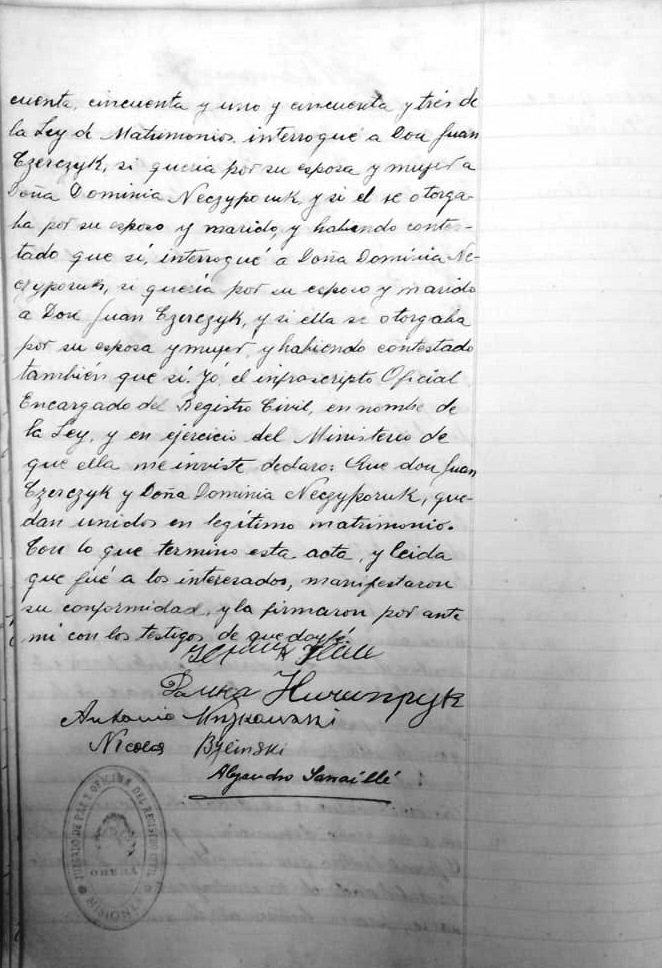 cuenta, cincuenta y uno y cincuenta y tres de
la Ley de Matrimonios, interrogué a Don Juan
Czerczyk, si quería por su esposa y mujer a
Doña Dominia Neczyporuk y si el se otorga-
ba por su esposo y marido, y habiendo contes-
tado que sí, interrogué a Doña Dominia Ne-
czyporuk, si quería por su esposo y marido
a Don Juan Czerczyk, y si ella se otorgaba
por su esposa y mujer, y habiendo contestado
también que sí. Yó, el infrascripto Oficial
Encargado del Registro Civil, en nombre de
la Ley, y en ejercicio del Ministerio de
que ella me inviste declaro: Que don Juan
Czerczyk y Doña Dominia Neczyporuk, que-
dan unidos en legítimo matrimonio.
Con lo que termino esta acta, y leida
que fué a los interesados, manifestaron
su conformidad, y la firmaron por ante
mi con los testigos de que doy fé.
Antonio
Nicolas Bylinski
Alejandro
JUZGADO DE PAZ Y OFICINA DEL REGISTRO CIVIL
OBERA
MISIONES